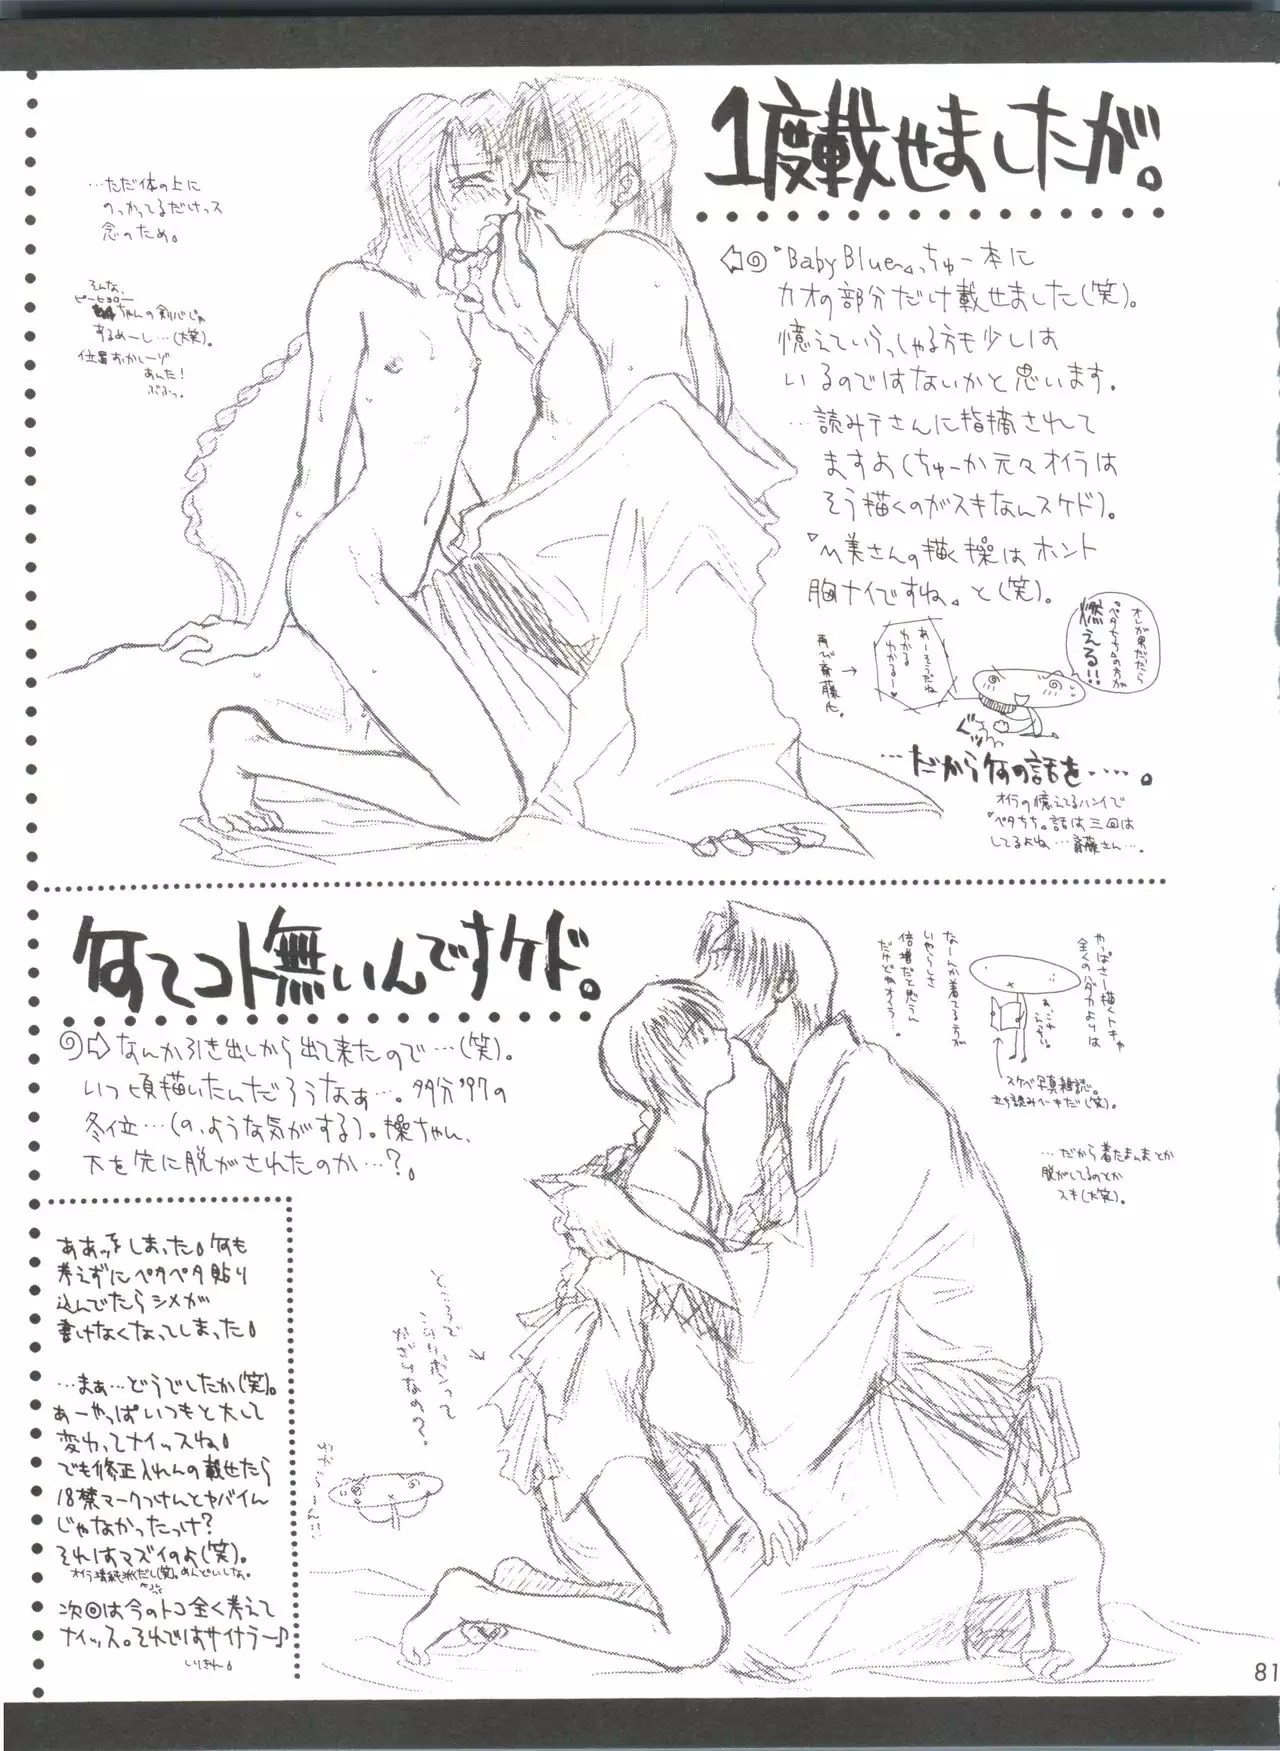 1度載せましたが。
『Baby Blue』っちゅー本に
カオの部分だけ載せました(笑)。
憶えていらっしゃる方も少しは
いるのではないかと思います。
…読み手さんに指摘されて
ますよ(ちゅーか元々オイラは
そう描くのがスキなんスケド)。
美さんの描く操はホント
胸ナイですね。と(笑)。
…ただ体の上に
のっかってるだけっス
念のため。
そんな、
ピーヒョロー
ちゃんの剣バじゃ
あるめーし…(大笑)。
位置おかしーゾ
あんた!
ぷぷっ。
オレが男だったら
『ペタちち』の方が
燃える!!
あーそうだね
わかる
わかるー♥
再び斎藤氏。
…だから何の話を・・・・。
オイラの憶えてるハンイで
『ペタちち』話は三回は
してるよね…斎藤さん…。
何てコト無いんですケド。
なんか引き出しから出て来たので…(笑)。
いつ頃描いたんだろうなぁ…。多分'97の
冬位…(の、ような気がする)。操ちゃん、
下を先に脱がされたのか…?。
やっぱさー描くトキゃ
全くのハダカよりは
なーんか着てる方が
いやらしさ
倍増だと思うん
だけどねオイラ…。
スケベ写真雑誌。
立ち読みヘーキだ(笑)。
…だから着たまんまとか
脱がしてるのとか
スキ(大笑)。
ああッをしまった。何も
考えずにペタペタ貼り
込んでたらシメが
書けなくなってしまった。
…まぁ…どうでしたか(笑)。
あーやっぱいつもと大して
変わってナイッスね。
でも修正入れんの載せたら
18禁マークつけんとヤバイん
じゃなかったっけ?
それはマズイのよ(笑)。
オイラ清純派だし(笑)。めんどいしな。
次回は今のトコ全く考えて
ナイッス。それではサイナラー♪
81